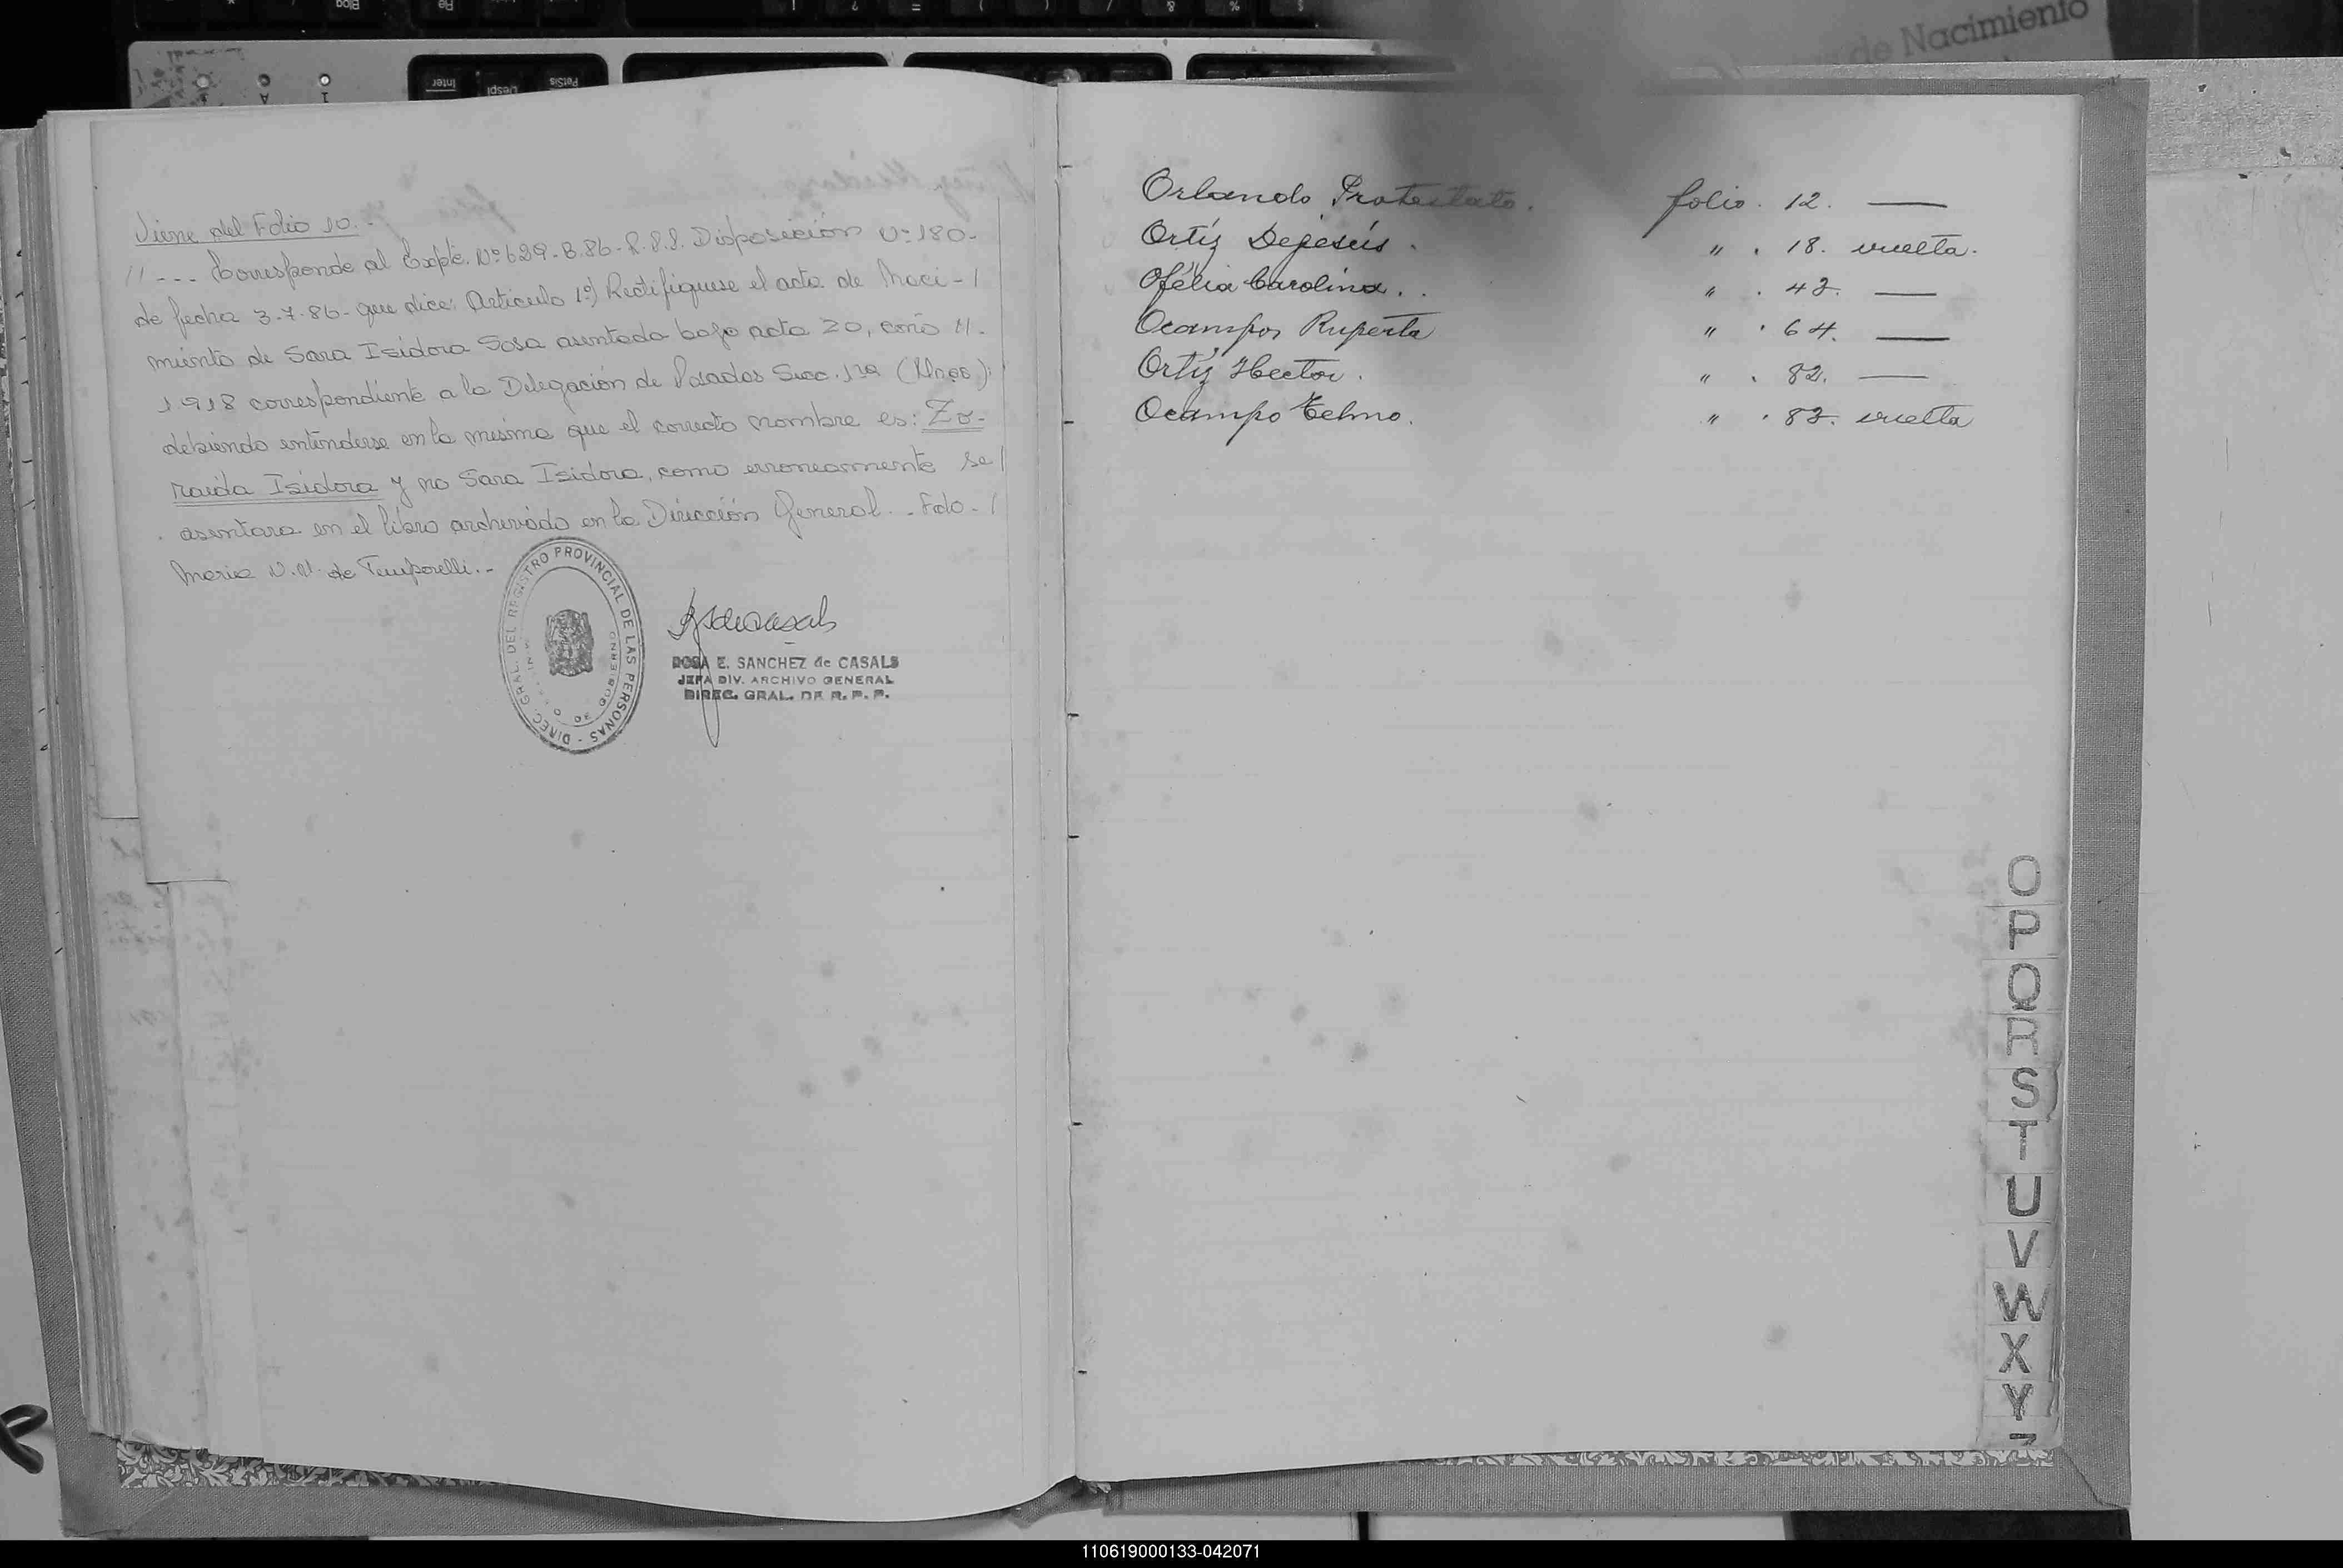 Viene del Folio 10.-
//--- Corresponde al Expte. Nº 629-B.86-R.P.P. Disposición Nº 180-
de fecha 3-7-86- que dice: Artículo 1º) Rectifíquese el acta de Naci-/
miento de Sara Isidora Sosa asentada bajo acta 20, año
1918 correspondiente a la Delegación de Posadas Secc. 1ra (Mnes.):
debiendo entenderse en la misma que el correcto nombre es: Zo-
raida Isidora y no Sara Isidora, como erroneamente se/
asentara en el libro archivado en la Dirección General.-Fdo.-/
Maria N.N. de Temporelli.-
DIREC. GRAL. DEL REGISTRO PROVINCIAL DE LAS PERSONAS -
DE GOBIERNO
ROSA E. SANCHEZ de CASALS
JEFA DIV. ARCHIVO GENERAL
DIREC. GRAL. DE R. P. P.
Orlando Protestato. folio. 12. —
Ortíz Dejesús. " . 18. vuelta.
Ofélia Carolina. . " . 43. —
Ocampos Ruperta " . 64. —
Ortíz Hector. " . 82. —
Ocampo Telmo. " . 83. vuelta
O
P
Q
R
S
T
U
V
W
X
Y
Z
de Nacimiento
110619000133-042071